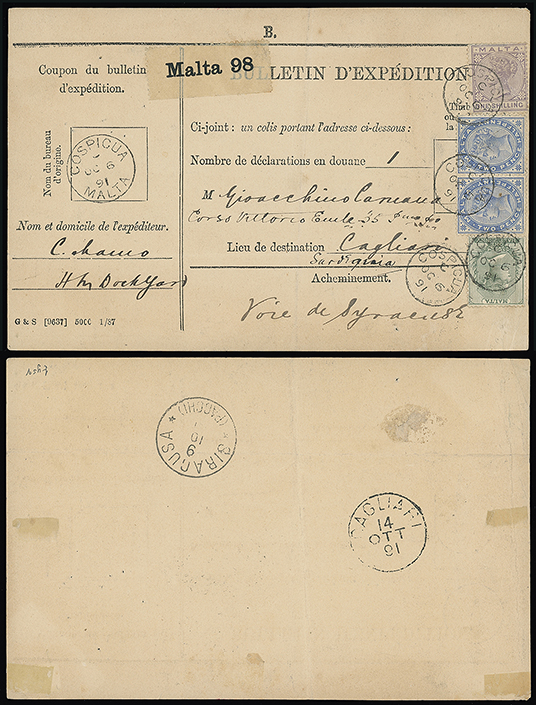 B.
Coupon du bulletin
d'expédition.
Malta 98
BULLETIN D'EXPÉDITION.
MALTA
SHILLING
Ci-joint : un colis portant l'adresse ci-dessous :
Nom du bureau
d'origine.
COSPICUA
OC 6
91
MALTA
Nombre de déclarations en douane 1
TWO PENCE HALFPENNY
TWO PENCE HALFPENNY
M Gioacchino
Corso Vittorio Emle 35
Nom et domicile de l'expéditeur.
Lieu de destination Cagliari
Sardignia
C. Mamo
HM Dockyard
COSPICUA
OC 6
91
MALTA
Acheminement.
Voie de Syracuse
G & S [9637] 5000 1/87
SIRAGUSA
(PACCHI)
10
9
CAGLIARI
14
OTT
91